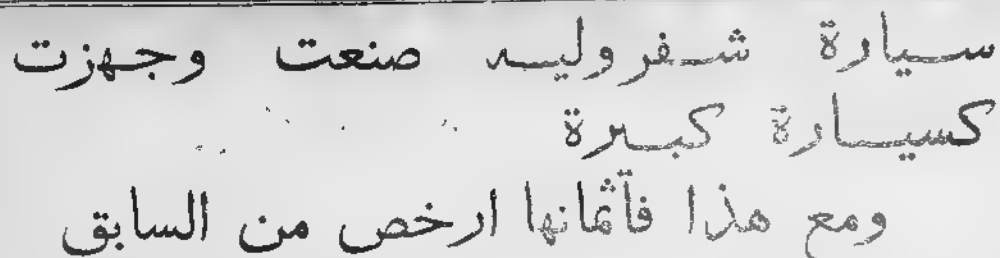 سيارة شفروليه صنعت وجهزت
كسيارة كبيرة
ومع هذا فأثمانها ارخص من السابق